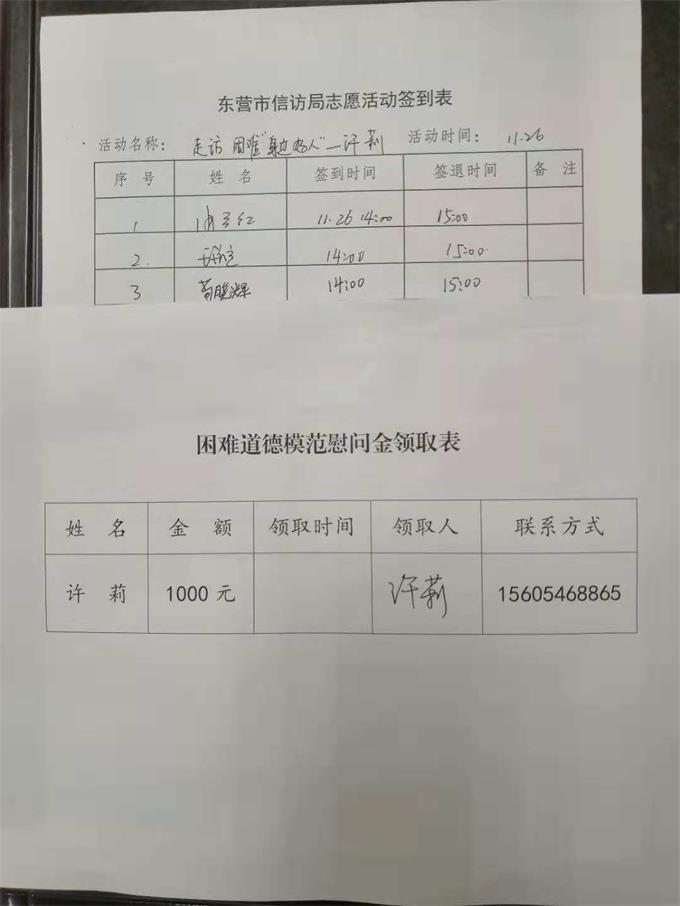 东营市信访局志愿活动签到表
活动名称： 走访困难"身边好人"—许莉 活动时间： 11.26
序号 姓名 签到时间 签退时间 备注
1 红 11.26 14:00 15:00
2. 14:00 15:00.
3 苟晓辉 14:00 15:00
困难道德模范慰问金领取表
姓名 金额 领取时间 领取人 联系方式
许莉 1000元 许莉 15605468865